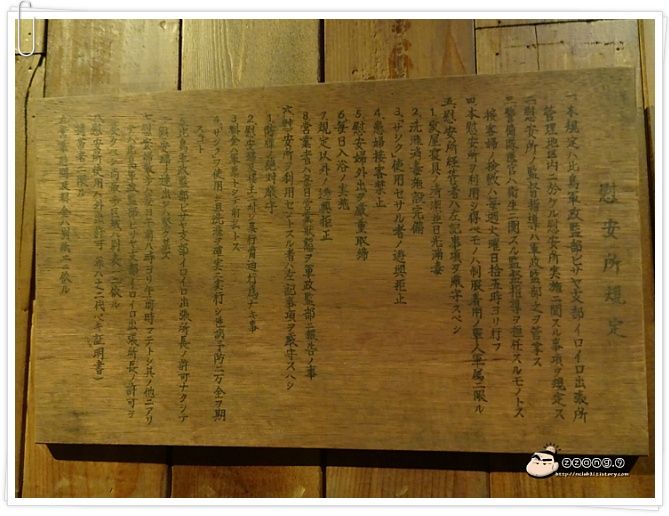 慰安所規定
一本規定ハ比島軍政監部ビサヤ支部イロイロ出張所
管理地区内ニ於ケル慰安所実施ニ関スル事項ヲ規定ス
二慰安所ノ監督指導ハ軍政監部之ヲ管掌ス
三警備隊医官ハ衛生ニ関スル監督指導ヲ担任スルモノトス
接客婦ノ検黴ハ毎週火曜日拾五時ヨリ行フ
四本慰安所ヲ利用シ得ベキモノハ制服着用ノ軍人軍属ニ限ル
五慰安所経営者ハ左記事項ヲ厳守スベシ
1.家屋寝具ノ清潔並日光消毒
2.洗滌消毒施設完備
3.サック使用セサル者ノ遊興拒止
4.患婦接客禁止
5.慰安婦外出ヲ厳重取締
6.毎日入浴ノ実施
7.規定以外ノ遊興拒止
8.営業者ハ毎日営業状態ヲ軍政監部ニ報告ノ事
六慰安所ヲ利用セントスル者ハ左記事項ヲ厳守スヘシ
1.防諜ノ絶対厳守
2.慰安婦及楼主ニ対シ暴行脅迫行為ナキ事
3.料金ハ軍票トシテ前払トス
4.サックヲ使用シ且洗滌ヲ確実ニ実行シ性病予防ニ万全ヲ期
スコト
5.比島軍政監部ビサヤ支部イロイロ出張所長ノ許可ナクシテ
慰安婦ノ連出シハ堅ク禁ズ
七慰安婦散歩ハ毎日午前八時ヨリ午前十時マデトシ其ノ他ニアリ
テハ比島軍政監部ビサヤ支部イロイロ出張所長ノ許可ヲ
受クベシ尚散歩区域ハ別表一ニ依ル
八慰安所使用ハ外出許可(亦ハ之ニ代ベキ証明書)
携帯者ニ限ル
九営業時間及料金ハ別紙二ニ依ル
zzang.g